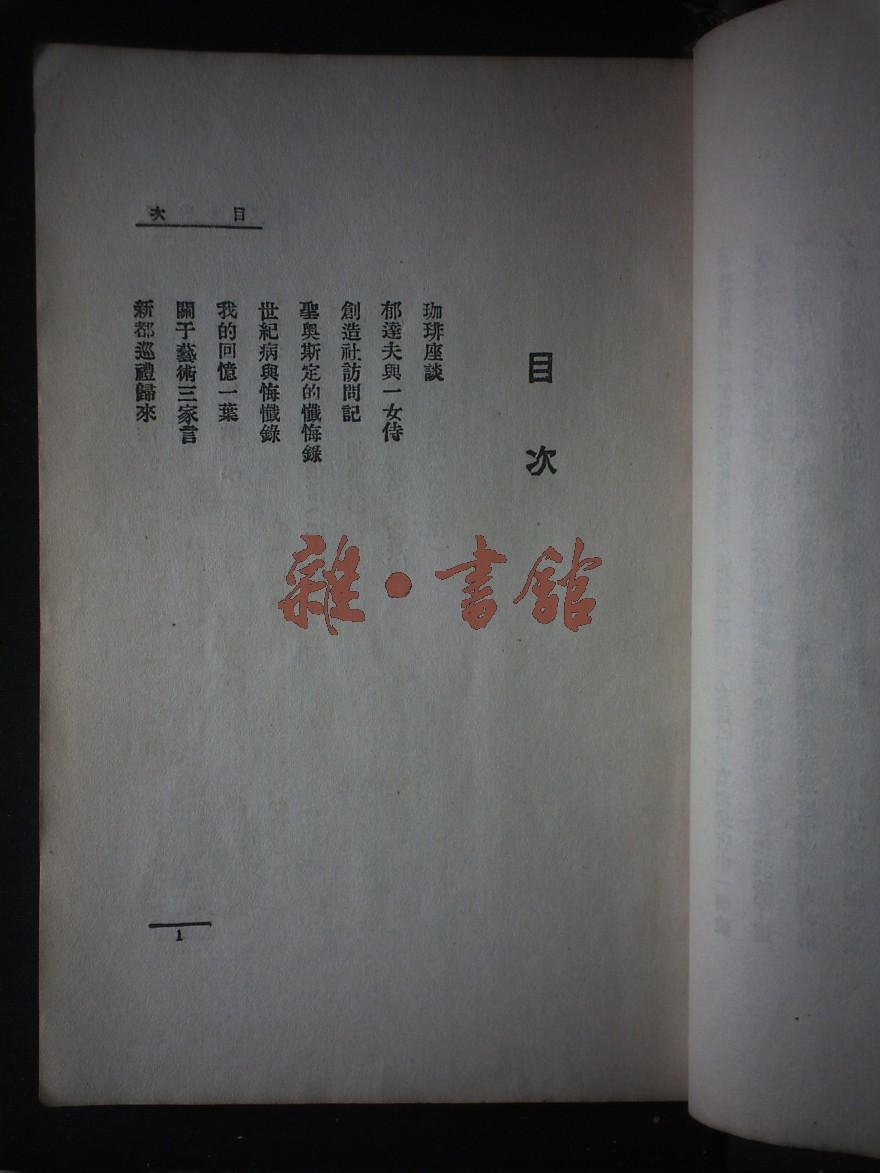 目次
目次
珈琲座談
郁達夫與一女侍
創造社訪問記
聖奧斯定的懺悔錄
世紀病與悔懺錄
我的回憶一葉
關于藝術三家言
新都巡禮歸來
雜·書館
1